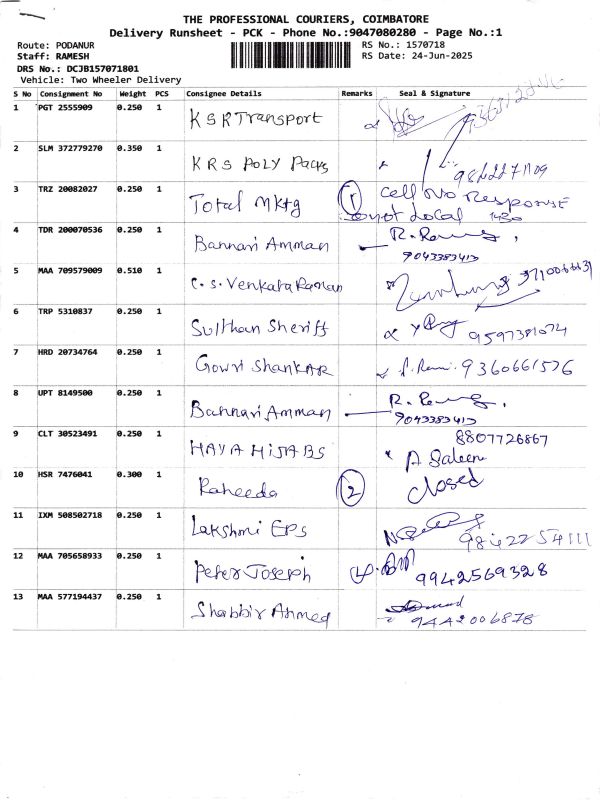 THE PROFESSIONAL COURIERS, COIMBATORE
Delivery Runsheet - PCK - Phone No.:9047080280 - Page No.:1
Route: PODANUR RS No.: 1570718
Staff: RAMESH RS Date: 24-Jun-2025
DRS No.: DCJB157071801
Vehicle: Two Wheeler Delivery
S No Consignment No Weight PCS Consignee Details Remarks Seal & Signature
1 PGT 2555909 0.250 1 KSR Transport
2 SLM 372779270 0.350 1 KRS POLY Packs
3 TRZ 20082027 0.250 1 Total Mktg 1 Cell No Response
not Local 1430
4 TDR 200070536 0.250 1 Bannari Amman
9043383413
5 MAA 709579009 0.510 1 C.S. Venkata Raman
6 TRP 5310837 0.250 1 Sulthan Sheriff 9597381074
7 HRD 20734764 0.250 1 Gowri Shankar 9360661576
8 UPT 8149500 0.250 1 Bannari Amman
9043383413
9 CLT 30523491 0.250 1 HAYA HIJABS 8807726867
A Saleem
10 HSR 7476041 0.300 1 Raheeda 2 Closed
11 IXM 508502718 0.250 1 Lakshmi EPS 9842254111
12 MAA 705658933 0.250 1 Peter Joseph 9942569328
13 MAA 577194437 0.250 1 Shabbir Ahmed 9442006878